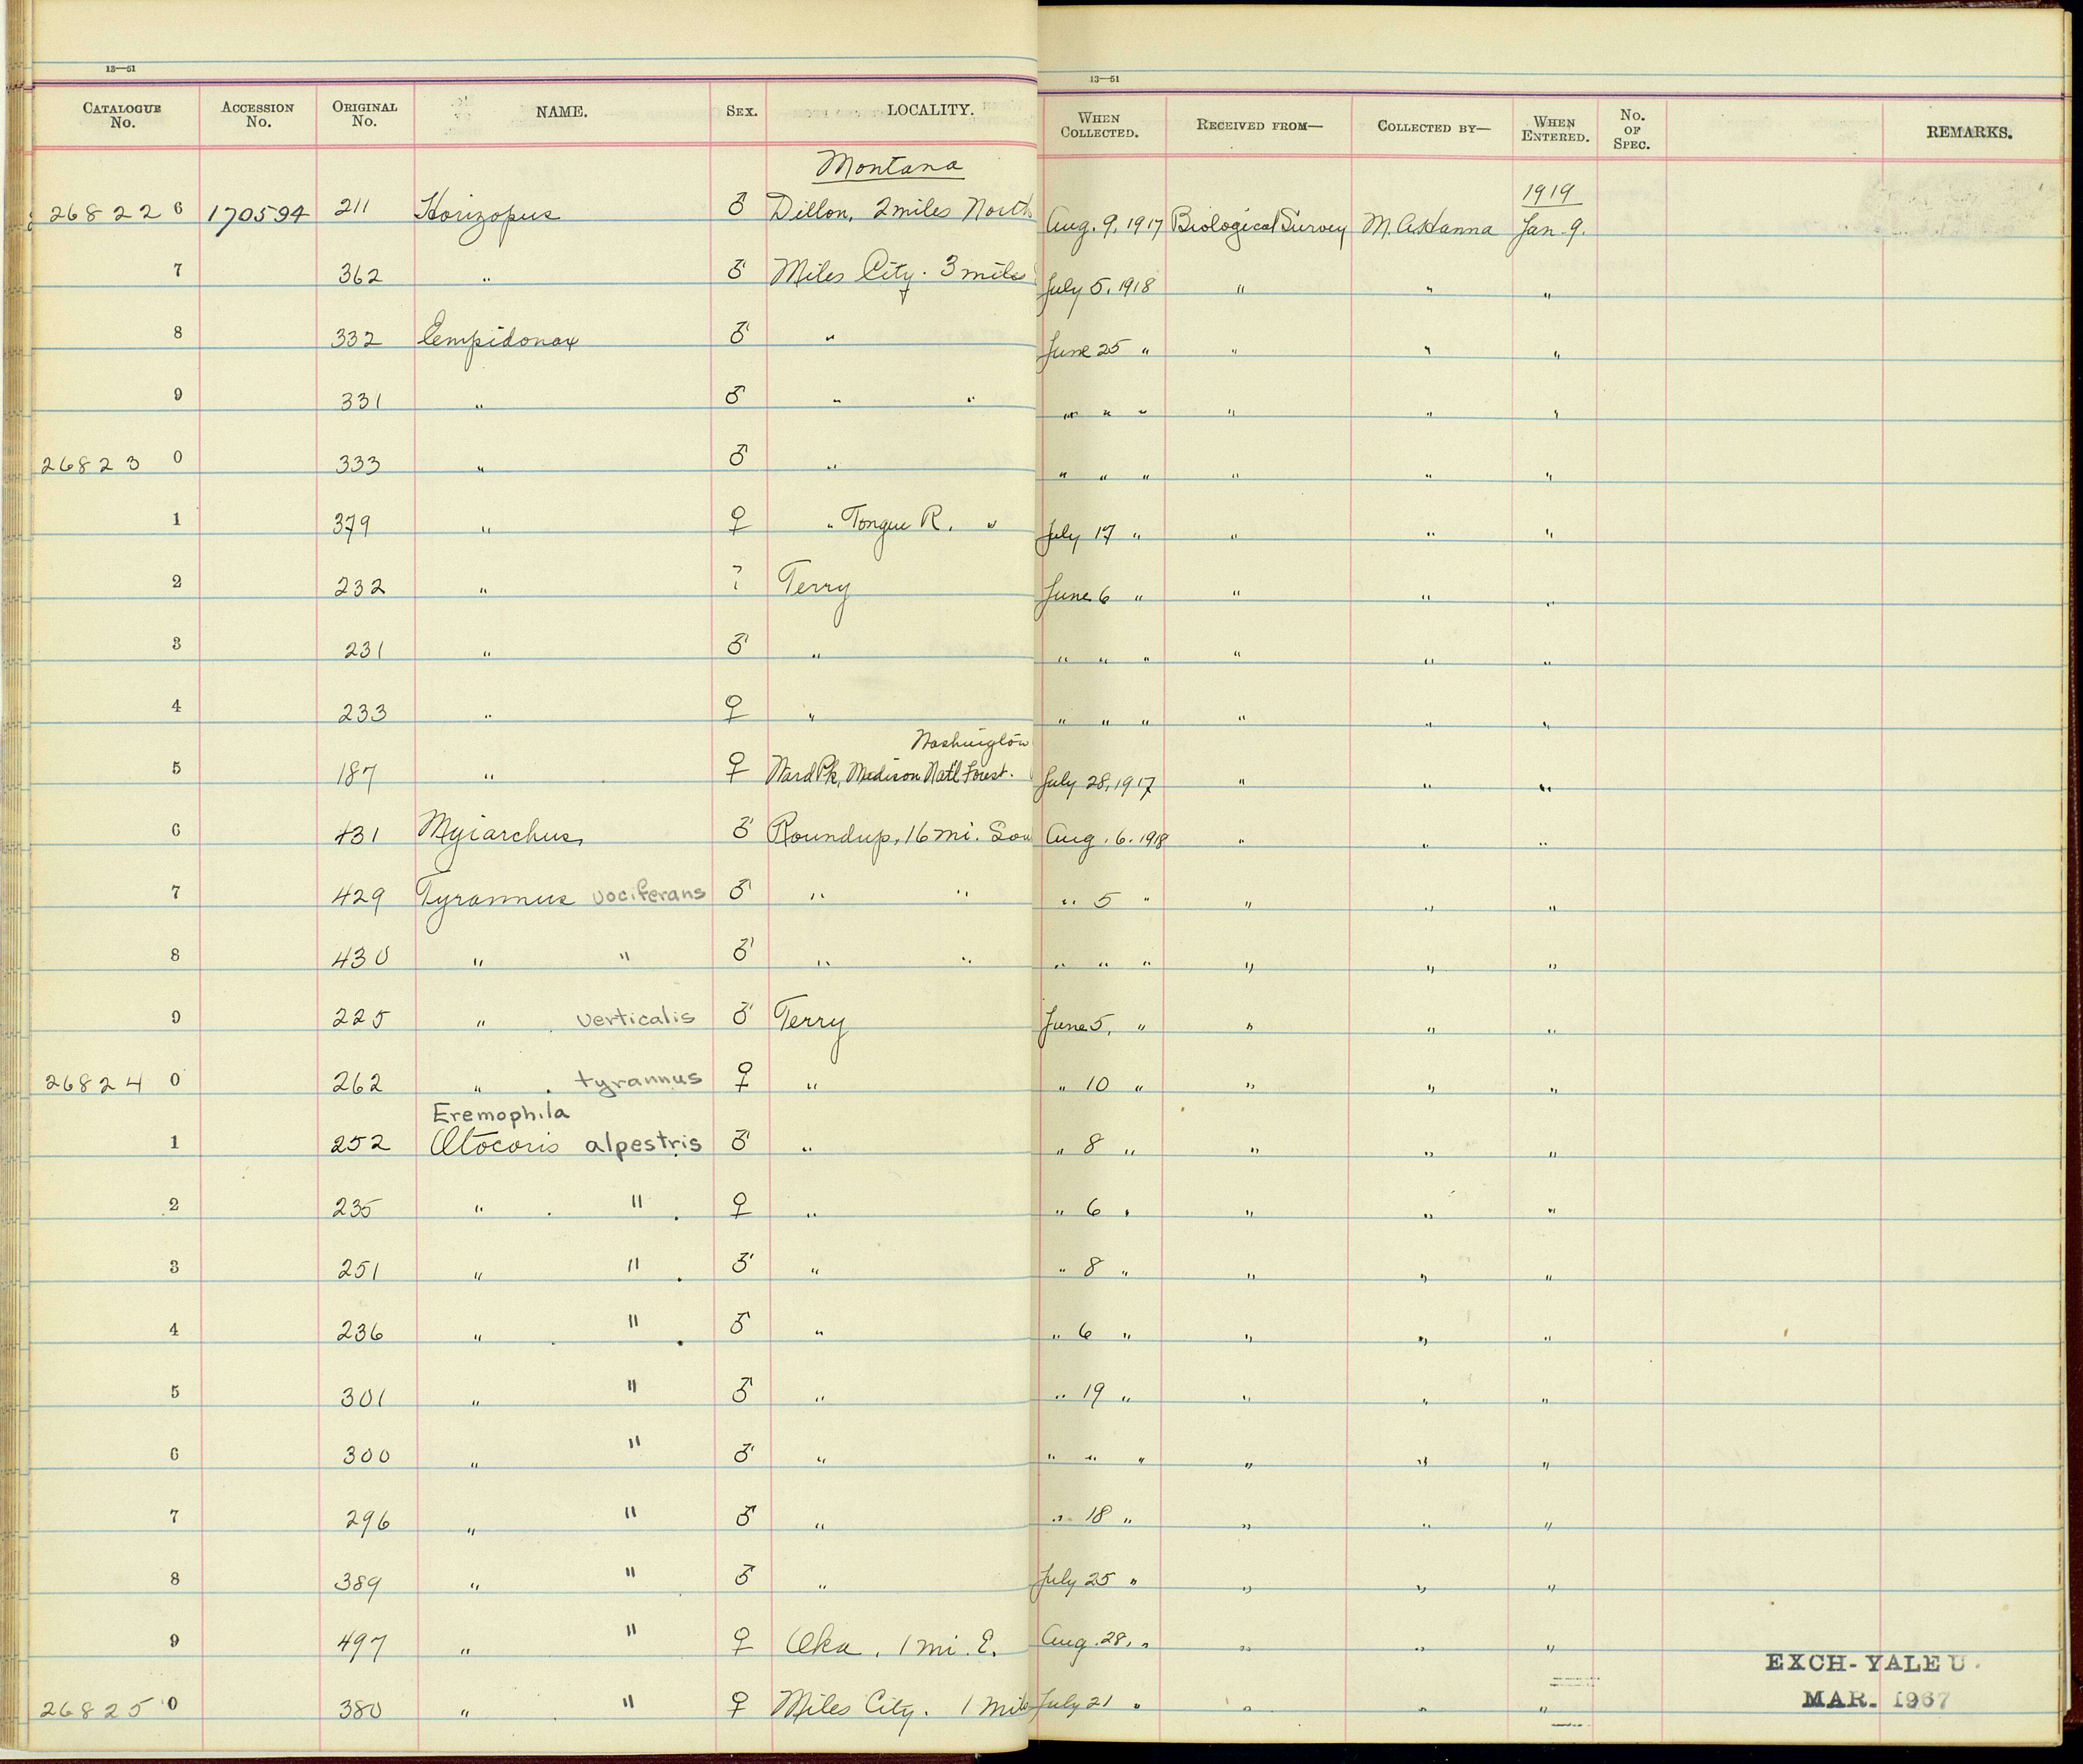 13—51 13—51
CATALOGUE No. ACCESSION No. ORIGINAL No. NAME. SEX. LOCALITY. WHEN COLLECTED. RECEIVED FROM— COLLECTED BY— WHEN ENTERED. No. OF SPEC. REMARKS.
Montana 1919
268226 170594 211 Horizopus ♂ Dillon, 2 miles North Aug. 9, 1917 Biological Survey M. A. Hanna Jan. 9.
7 362 " ♂ Miles City. 3 miles July 5, 1918 " " "
8 332 Empidonax ♂ " June 25 " " " "
9 331 " ♂ " " " " " " " "
268230 333 " ♂ " " " " " " "
1 379 " ♀ " Tongue R. " July 17 " " " "
2 232 " ? Terry June 6 " " " "
3 231 " ♂ " " " " " " "
4 233 " ♀ " " " " " " "
Washington
5 187 " ♀ Ward Pk, Madison Natl Forest. July 28, 1917 " " "
6 431 Myiarchus ♂ Roundup, 16 mi. Sou Aug. 6. 1918 " " "
7 429 Tyrannus vociferans ♂ " " " 5 " " " "
8 430 " " ♂ " " " " " " " "
9 225 " verticalis ♂ Terry June 5, " " " "
268240 262 " tyrannus ♀ " " 10 " " " "
Eremophila
1 252 Otocoris alpestris ♂ " " 8 " " " "
2 235 " " ♀ " " 6 " " " "
3 251 " " ♂ " " 8 " " " "
4 236 " " ♂ " " 6 " " " "
5 301 " " ♂ " " 19 " " " "
6 300 " " ♂ " " " " " " "
7 296 " " ♂ " " 18 " " " "
8 389 " " ♂ " July 25 " " " "
9 497 " " ♀ Oka, 1 mi. E. Aug. 28, " " " "
EXCH-YALE U.
268250 380 " " ♀ Miles City. 1 mile July 21 " " " " MAR. 1967